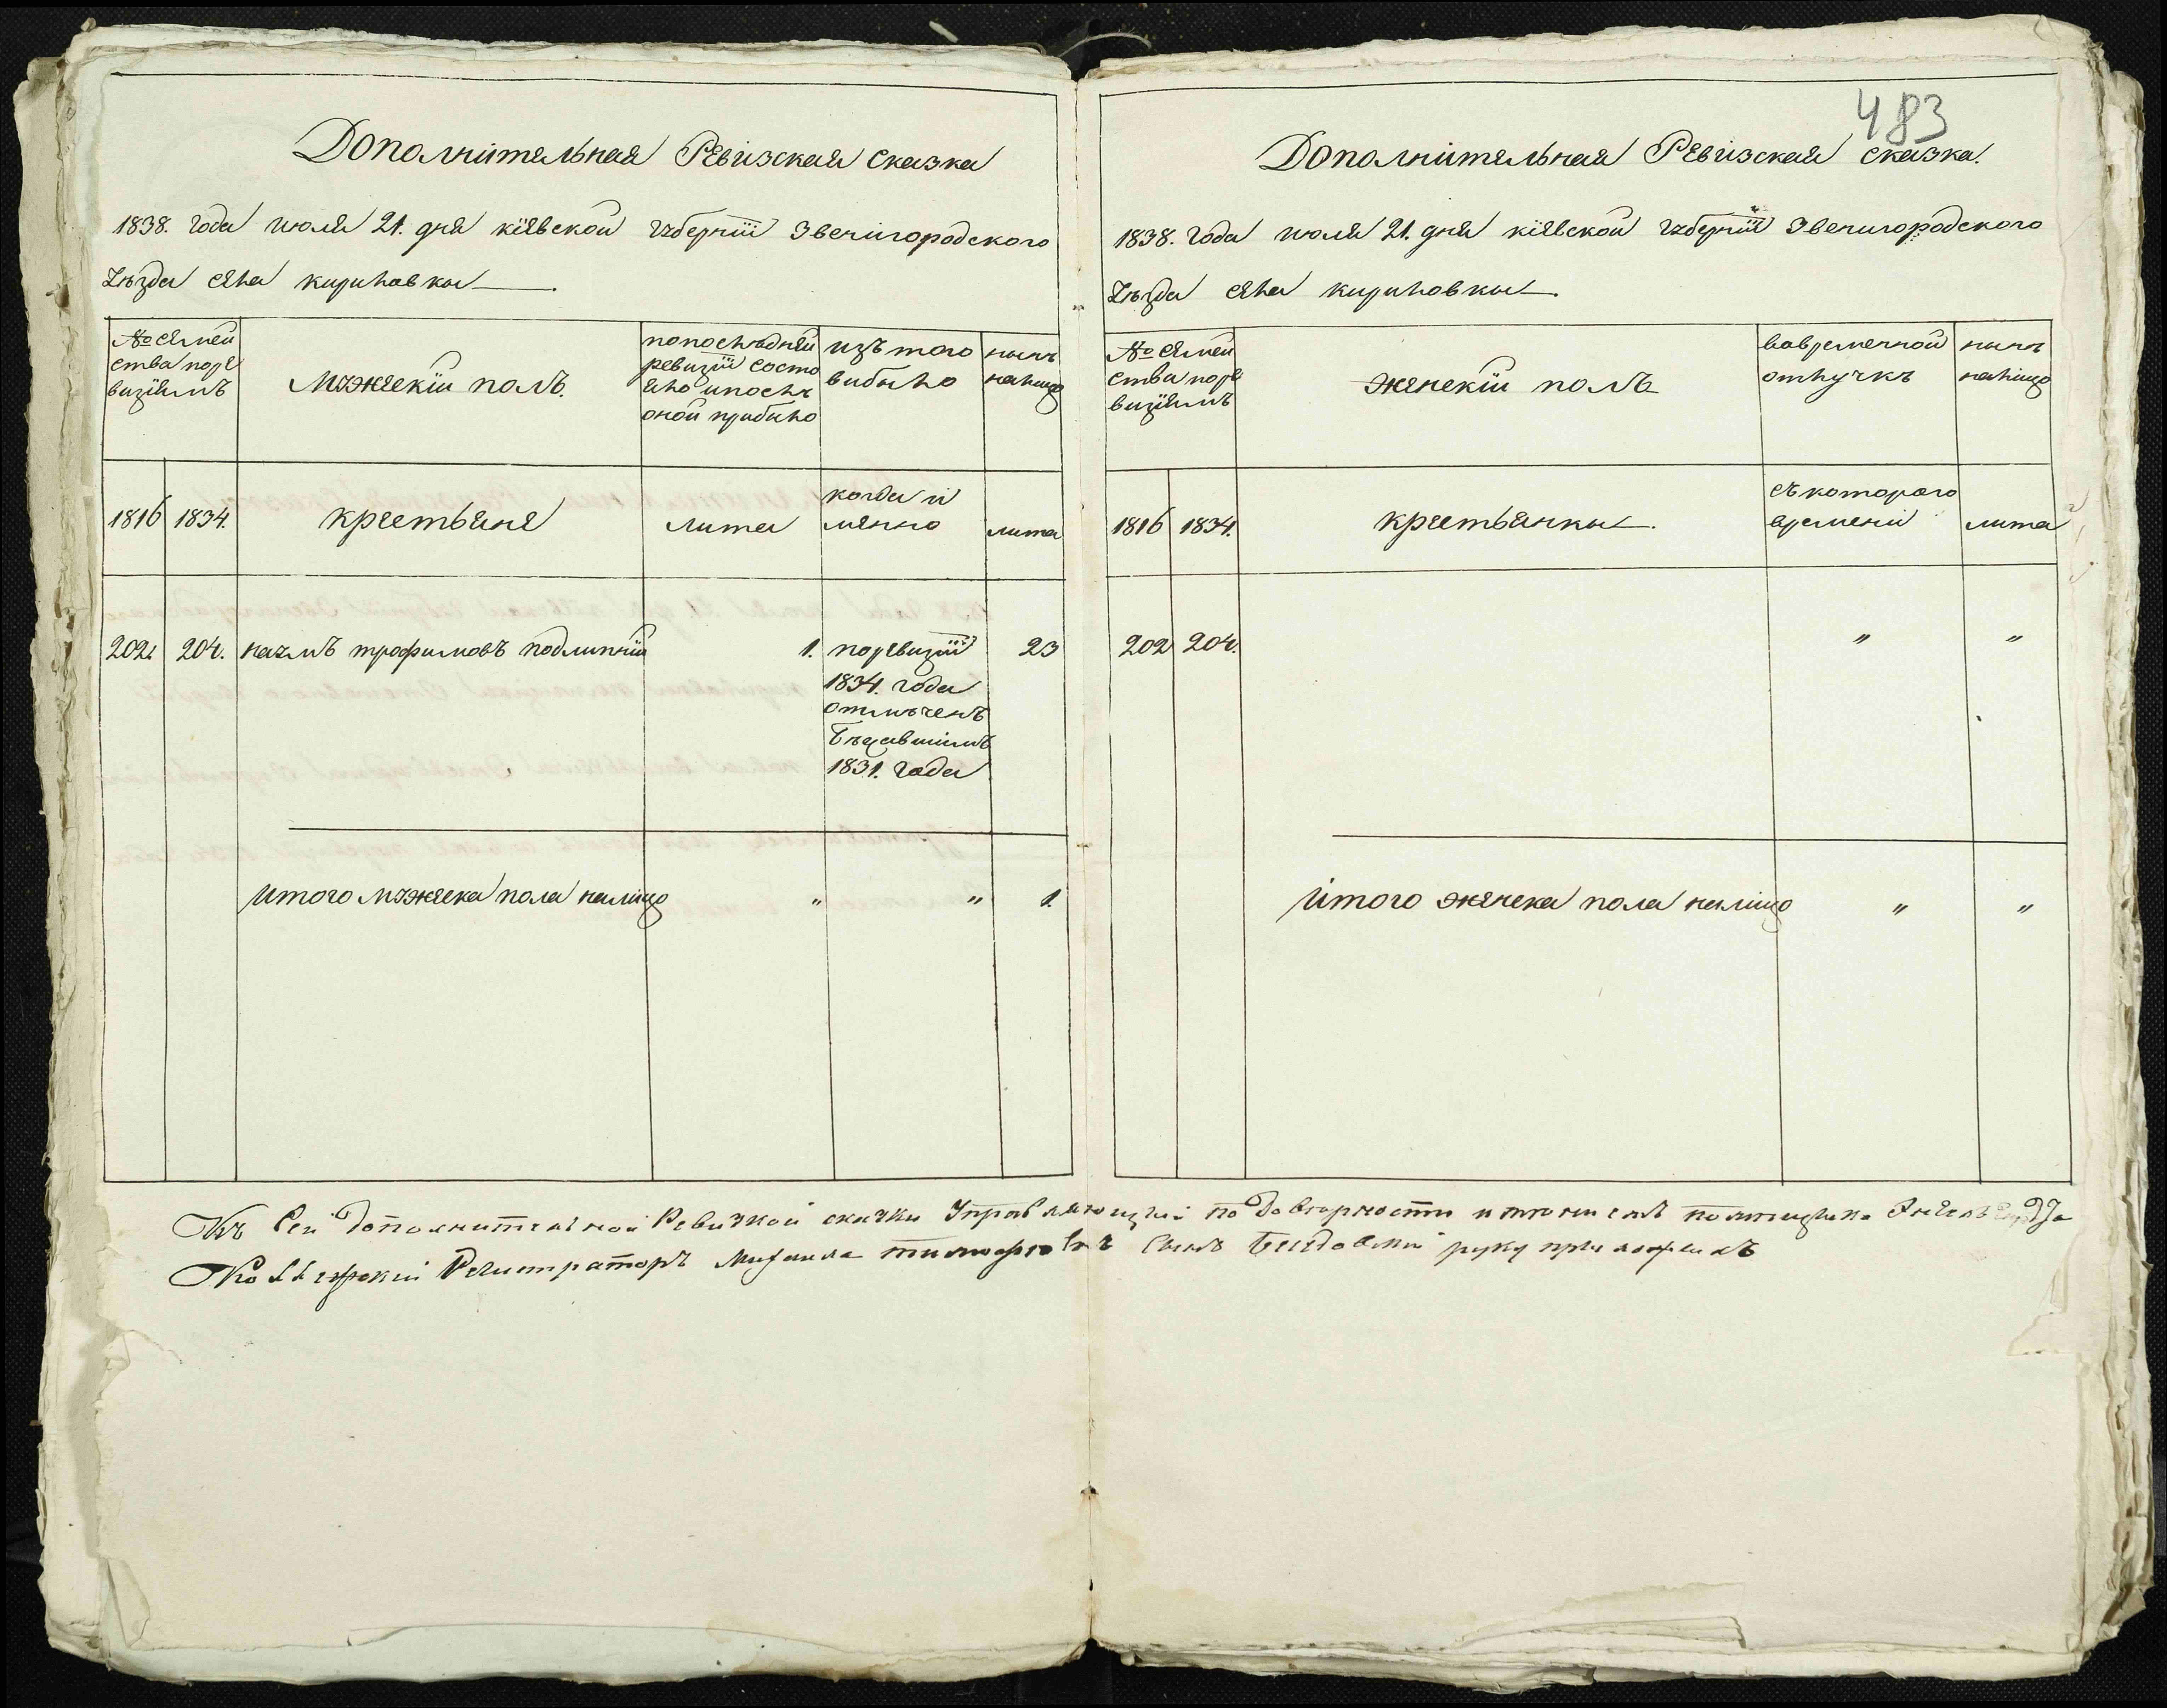 Дополнительная Ревизская Сказка
1838. года июля 21. дня кіевской губерніи Звенигородского
уѣзда села кириловки
№ семей
ства по ре
визіямъ
Мужескій полъ.
по послѣдней
ревизіи состо
яло и послѣ
оной прибыло
изъ того
выбыло
нынѣ
налицо
1816 1834.
крестьяне
лита
когда и
мянно
лита
202. 204. наумъ трофимовъ подлипній 1. по ревизіи 23
1834. года
отмѣченъ
бѣжавшимъ
1831. года
Итого мужеска пола налицо " " 1.
483
Дополнительная Ревизская Сказка.
1838. года июля 21. дня кіевской губерніи Звенигородского
уѣзда села кириловки.
№ семей
ства по ре
визіямъ
женскій полъ
во временной
отлучкѣ
нынѣ
налицо
1816 1834.
крестьянки.
съ которого
времени
лита
202 204. " "
Итого женска пола налицо " "
Къ Сей дополнительной Ревизкой сказки Управляющій по Доверности имениемъ помещика
Коллежский Регистраторъ Михаила тимофеевъ Сынъ руку приложилъ